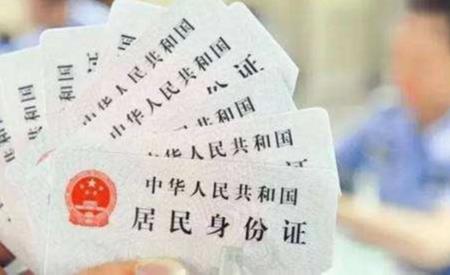 中华人民共和国
份证
中华人民共和国
中华人民共和国
中华人民共和国
居民身份证